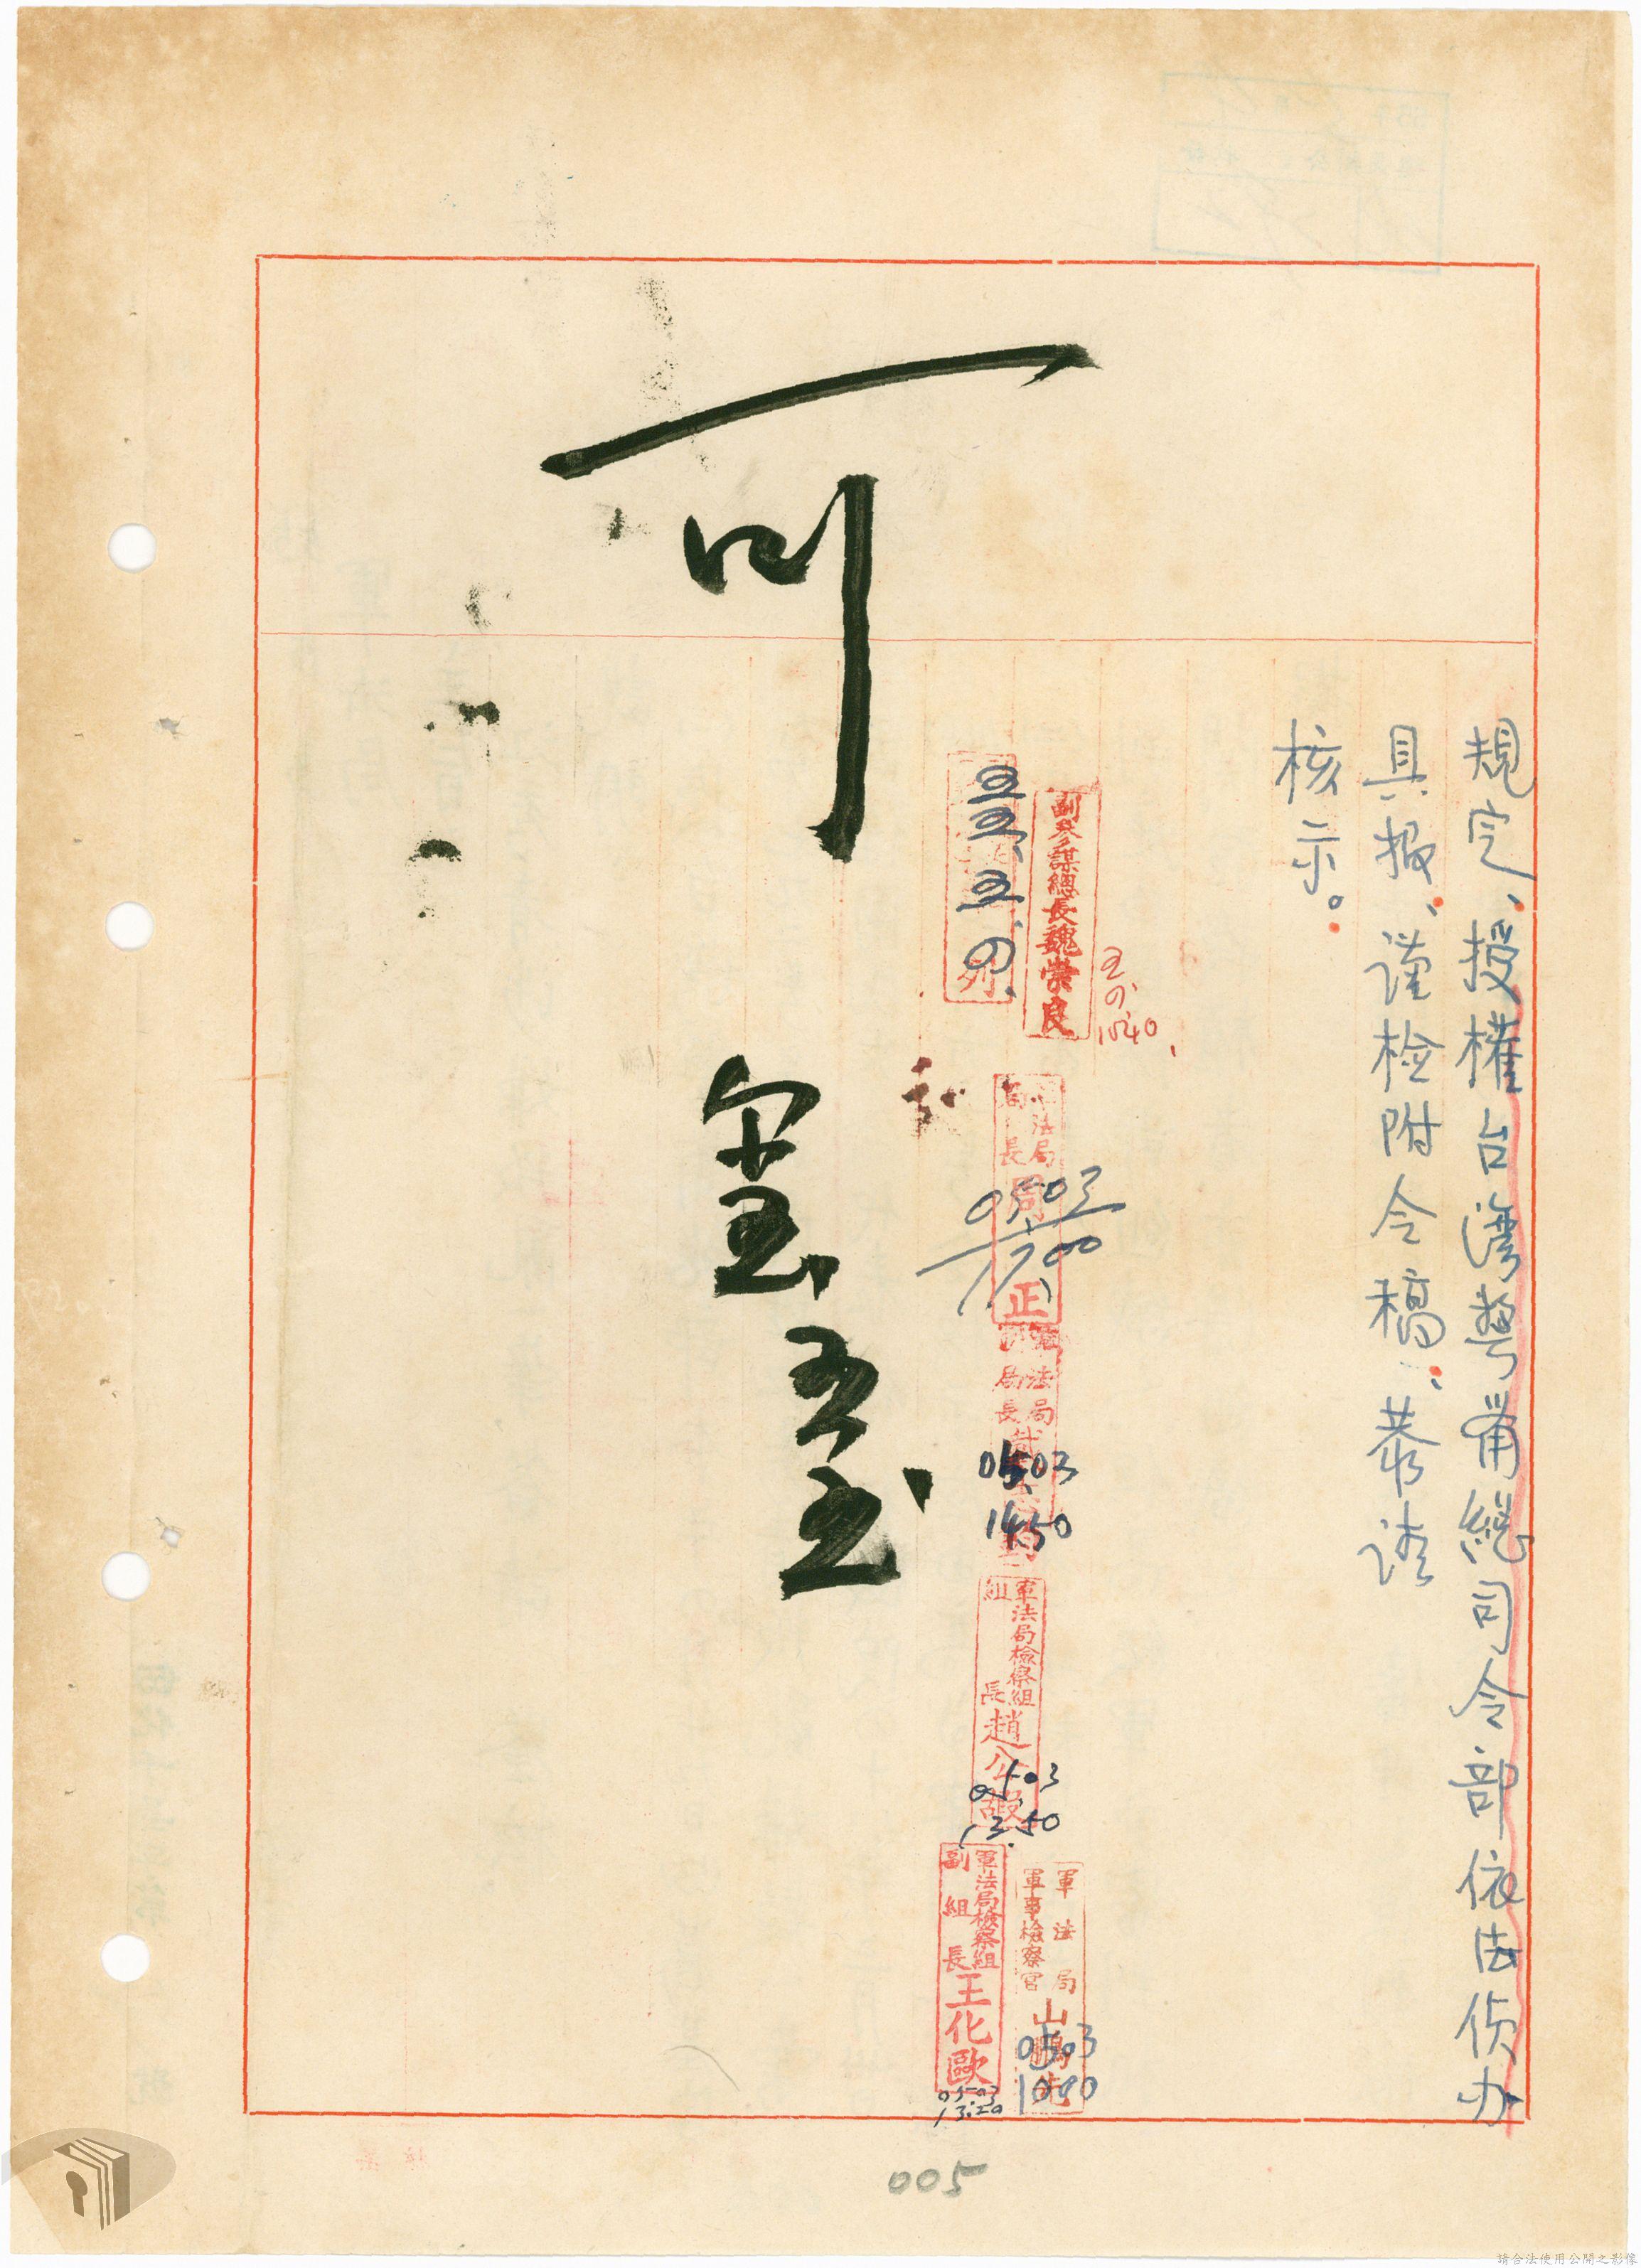 規定、授權台灣警備總司令部依法偵办
具报、謹检附令稿、恭请
核示。
副參謀總長魏崇良
五.の、
1040、
五五、五、の.
軍法局
局長
周 正
0503
1700
軍法局
局長
0503
1450
軍法局檢察組
組長
趙公嘏
0503
13.50
軍法局
軍事檢察官
山鵬
0503
軍法局檢察組
副組長
王化歐
0503
13.20
可
五五
005
請合法使用公開之影像